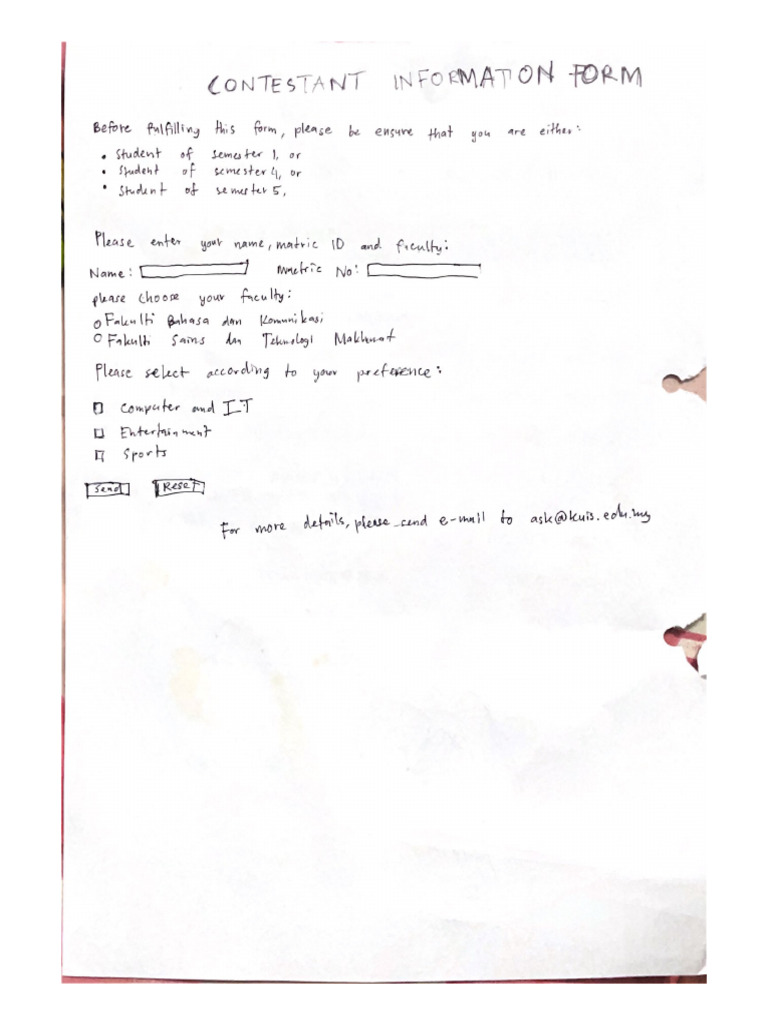 CONTESTANT INFORMATION FORM
Before fulfilling this form, please be ensure that you are either:
• Student of semester 1, or
• Student of semester 4, or
• Student of semester 5,
Please enter your name, matric ID and faculty:
Name: Matric No:
please choose your faculty:
Fakulti Bahasa dan Komunikasi
Fakulti Sains dan Teknologi Maklumat
Please select according to your preference:
Computer and IT
Entertainment
Sports
Send Reset
For more details, please send e-mail to ask@kuis.edu.my